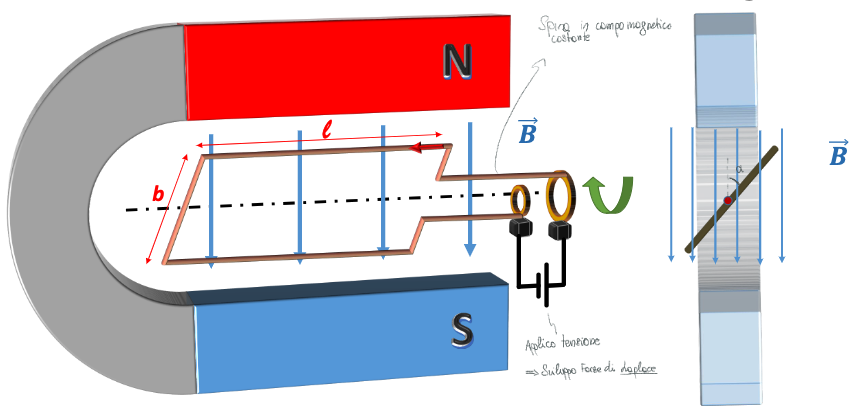 N
Spira in campo magnetico
costante
B
ℓ
b
B
α
S
Applico tensione
⇒ Sviluppo Forze di Laplace